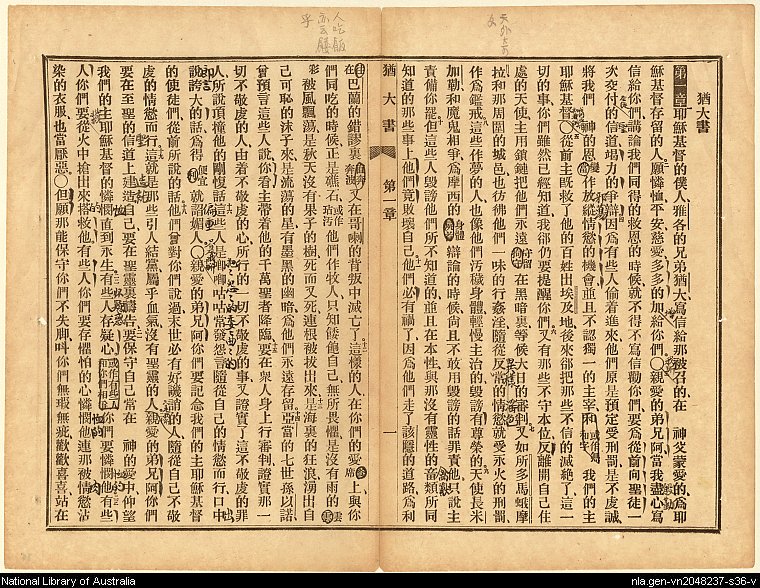 猶大書
第一章 耶穌基督的僕人雅各的兄弟猶大寫信給那被召的在 神父蒙愛的爲耶
穌基督存留的人願憐恤平安慈愛多多的加給你們○親愛的弟兄阿當我盡心寫
信給你們講論我們同得的救恩的時候就不得不寫信勸你們要爲從前向聖徒一
次交付的信道竭力的爭辯因爲有些人偷着進來他們原是預定受刑罰是不虔誠
將我們 神的恩變作放縱情慾的機會並且不認獨一的主宰和 我們的主
耶穌基督○從前主既救了他的百姓出埃及地後來卻把那些不信的滅絕了這一
切的事你們雖然已經知道我卻仍要提醒你們又有那些不守本位反離開自己住
處的天使主用鎖鏈把他們永遠 在黑暗裏等候大日的審判又如所多馬蛾摩
拉和那周圍的城邑也彷彿他們一味的行姦淫隨從反常的情慾就受永火的刑罰
作爲鑑戒這些作夢的人也像他們汚穢身體輕慢主治的毀謗有尊榮的天使長米
加勒和魔鬼相爭爲摩西的身體辯論的時候尚且不敢用毀謗的話罪責他只說主
責備你罷但這些人毀謗他們所不知道的並且在本性與那沒有靈性的畜類所同
知道的那些事上他們竟敗壞自己他們必有禍了因爲他們走了該隱的道路爲利
猶大書 第一章 一
在巴蘭的錯謬裏 又在哥喇的背叛中滅亡了這樣的人在你們的愛席上與你
們同吃的時候正是礁石或作玷汚他們作牧人只知餧飽自己無所畏懼是沒有雨的雲
彩被風飄蕩是秋天沒有果子的樹死而又死連根被拔出來是海裏的狂浪湧出自
己可恥的沫子來是流蕩的星有墨黑的幽暗爲他們永遠存留亞當的七世孫以諾
曾預言這些人說你看主帶着他的千萬聖者降臨要在衆人身上行審判證實那一
切不敬虔的人由着不敬虔的心所行的一切不敬虔的事又證實了這不敬虔的罪
人所說頂撞他的剛愎話這些人是唧唧咕咕常發怨言隨從自己的情慾而行口中
說誇大的話爲得便宜就諂媚人○親愛的弟兄阿你們要記念我們的主耶穌基督
的使徒們從前所說的話他們曾對你們說過末世必有好譏誚的人隨從自己不敬
虔的情慾而行這就是那些引人結黨屬乎血氣沒有聖靈的人親愛的弟兄阿你們
要在至聖的信道上建造自己要在聖靈裏禱告要保守自己常在 神的愛中仰望
我們的主耶穌基督的憐憫直到永生有些人存疑心 你們要憐憫他有些
人你們要從火中搶出來搭救他有些人你們要存懼怕的心憐憫他連那被情慾沾
染的衣服也當厭惡○但願那能保守你們不失脚叫你們無瑕無疵歡歡喜喜站在
National Library of Australia
nla.gen-vn2048237-s36-v